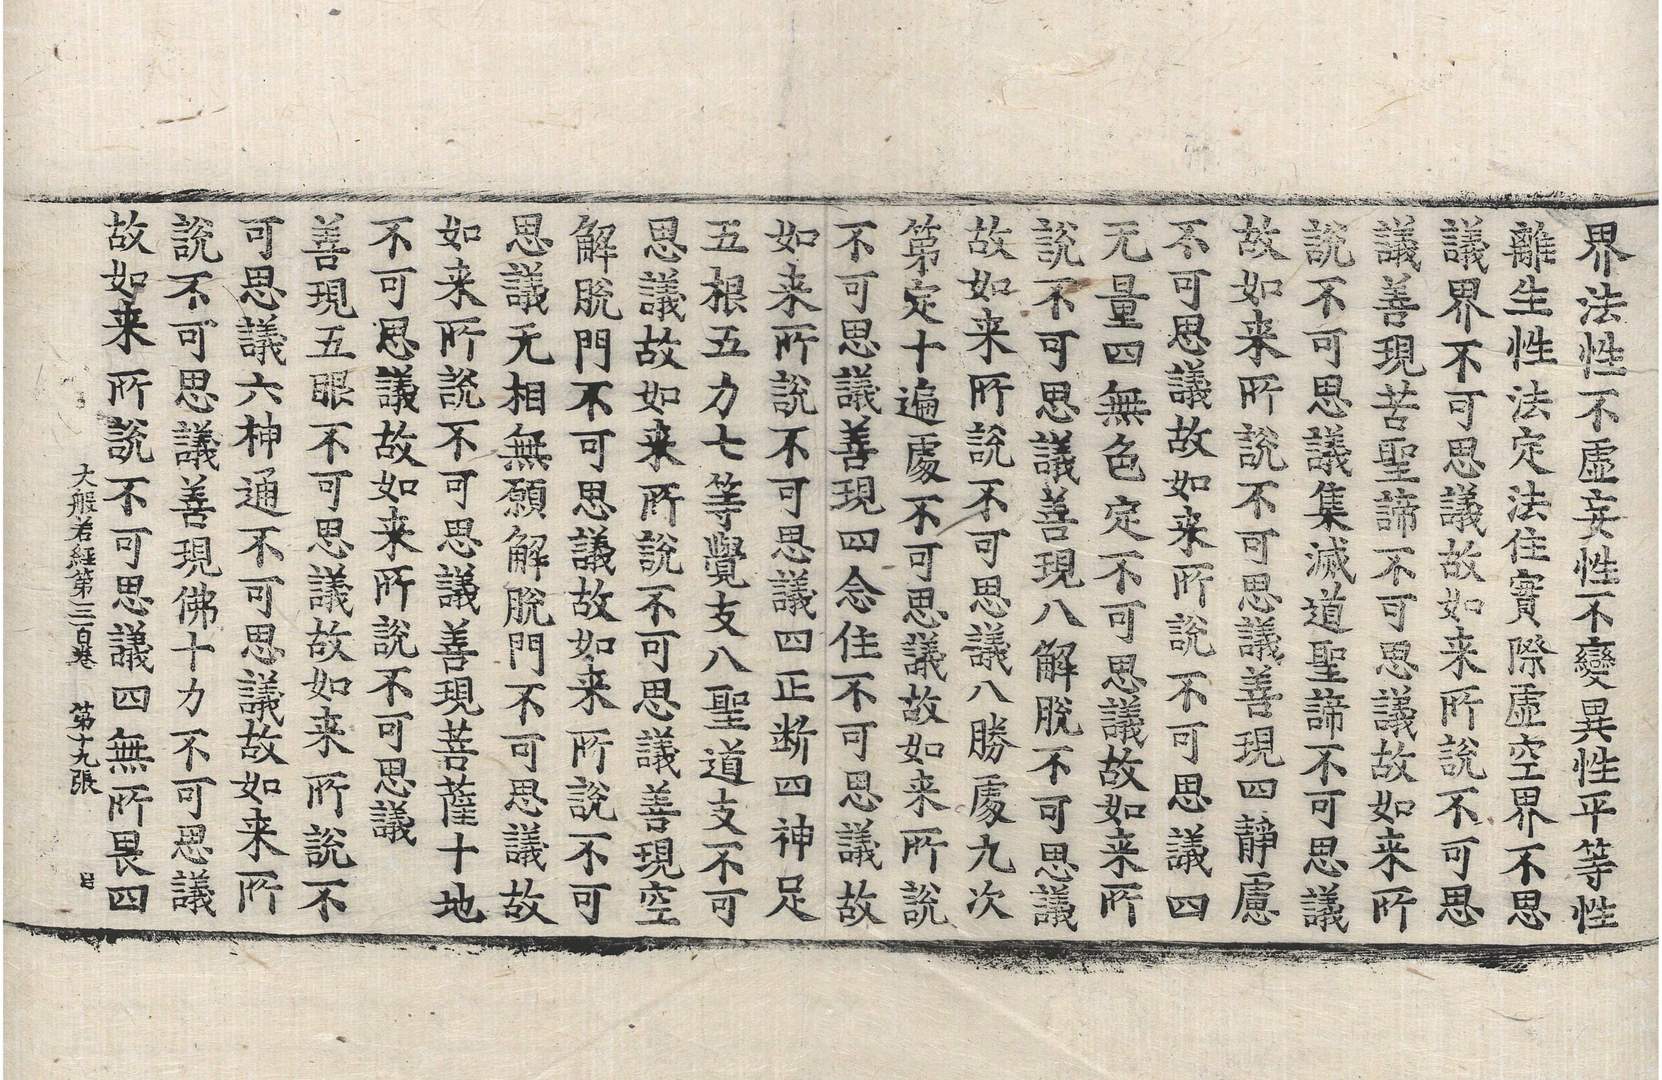 界法性不虛妄性不變異性平等性
離生性法定法住實際虛空界不思
議界不可思議故如来所說不可思
議善現苦聖諦不可思議故如来所
說不可思議集滅道聖諦不可思議
故如来所說不可思議善現四靜慮
不可思議故如来所說不可思議四
无量四無色定不可思議故如来所
說不可思議善現八解脫不可思議
故如来所說不可思議八勝處九次
第定十遍處不可思議故如来所說
不可思議善現四念住不可思議故
如来所說不可思議四正断四神足
五根五力七等覺支八聖道支不可
思議故如来所說不可思議善現空
解脫門不可思議故如来所說不可
思議无相無願解脫門不可思議故
如来所說不可思議善現菩薩十地
不可思議故如来所說不可思議
善現五眼不可思議故如来所說不
可思議六神通不可思議故如来所
說不可思議善現佛十力不可思議
故如来所說不可思議四無所畏四
大般若經第三百卷 第十九張